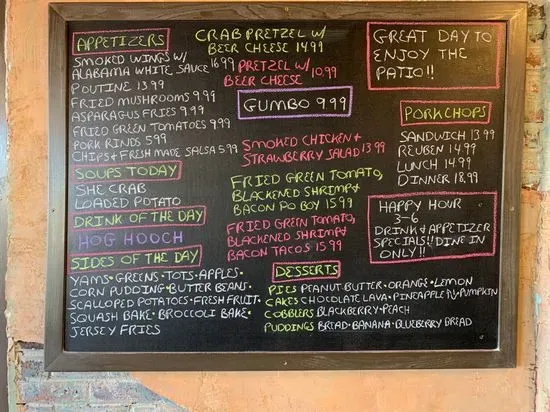 APPETIZERS
SMOKED WINGS W/
ALABAMA WHITE SAUCE 16.99
POUTINE 13.99
FRIED MUSHROOMS 9.99
ASPARAGUS FRIES 9.99
FRIED GREEN TOMATOES 9.99
PORK RINDS 5.99
CHIPS & FRESH MADE SALSA 5.99
SOUPS TODAY
SHE CRAB
LOADED POTATO
DRINK OF THE DAY
HOG HOOCH
SIDES OF THE DAY
YAMS • GREENS • TOTS • APPLES •
CORN PUDDING • BUTTER BEANS •
SCALLOPED POTATOES • FRESH FRUIT •
SQUASH BAKE • BROCCOLI BAKE •
JERSEY FRIES
CRAB PRETZEL W/
BEER CHEESE 14.99
PRETZEL W/
BEER CHEESE 10.99
GUMBO 9.99
SMOKED CHICKEN &
STRAWBERRY SALAD 13.99
FRIED GREEN TOMATO,
BLACKENED SHRIMP &
BACON PO BOY 15.99
FRIED GREEN TOMATO,
BLACKENED SHRIMP &
BACON TACOS 15.99
DESSERTS
PIES PEANUT BUTTER • ORANGE • LEMON
CAKES CHOCOLATE LAVA • PINEAPPLE • PUMPKIN
COBBLERS BLACKBERRY • PEACH
PUDDINGS BREAD • BANANA • BLUEBERRY BREAD
GREAT DAY TO
ENJOY THE
PATIO!!
PORK CHOPS
SANDWICH 13.99
REUBEN 14.99
LUNCH 14.99
DINNER 18.99
HAPPY HOUR
3-6
DRINK & APPETIZER
SPECIALS!! DINE IN
ONLY!!